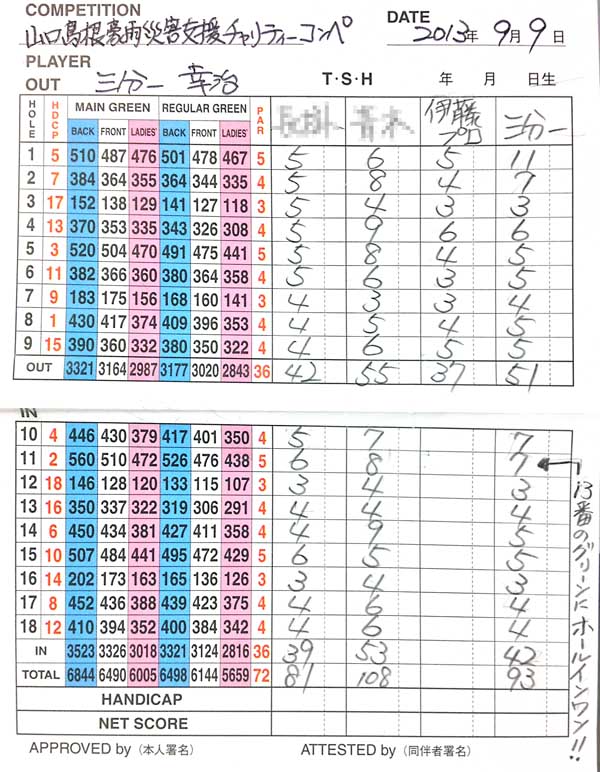 COMPETITION
山口島根豪雨災害支援チャリティーコンペ
DATE
2013年 9月 9日
PLAYER
OUT 三分一 幸治 T・S・H 年 月 日生
HOLE HDCP MAIN GREEN REGULAR GREEN PAR 伊藤プロ 三分一
BACK FRONT LADIES' BACK FRONT LADIES'
1 5 510 487 476 501 478 467 5 5 6 5 11
2 7 384 364 355 364 344 335 4 5 8 4 7
3 17 152 138 129 141 127 118 3 5 4 3 3
4 13 370 353 335 343 326 308 4 5 9 6 6
5 3 520 504 470 491 475 441 5 5 8 4 5
6 11 382 366 360 380 364 358 4 5 6 3 5
7 9 183 175 156 168 160 141 3 4 3 3 4
8 1 430 417 374 409 396 353 4 4 5 4 5
9 15 390 360 332 380 350 322 4 4 6 5 5
OUT 3321 3164 2987 3177 3020 2843 36 42 55 37 51
IN
10 4 446 430 379 417 401 350 4 5 7 7
11 2 560 510 472 526 476 438 5 6 8 7
12 18 146 128 120 133 115 107 3 3 4 3
13 16 350 337 322 319 306 291 4 4 4 4
14 6 450 434 381 427 411 358 4 4 9 5
15 10 507 484 441 495 472 429 5 6 5 5
16 14 202 173 163 165 136 126 3 3 4 3
17 8 452 436 388 439 423 375 4 4 6 4
18 12 410 394 352 400 384 342 4 4 6 4
IN 3523 3326 3018 3321 3124 2816 36 39 53 42
TOTAL 6844 6490 6005 6498 6144 5659 72 81 108 93
HANDICAP
NET SCORE
APPROVED by（本人署名） ATTESTED by（同伴者署名）
13番のグリーンにホールインワン!!